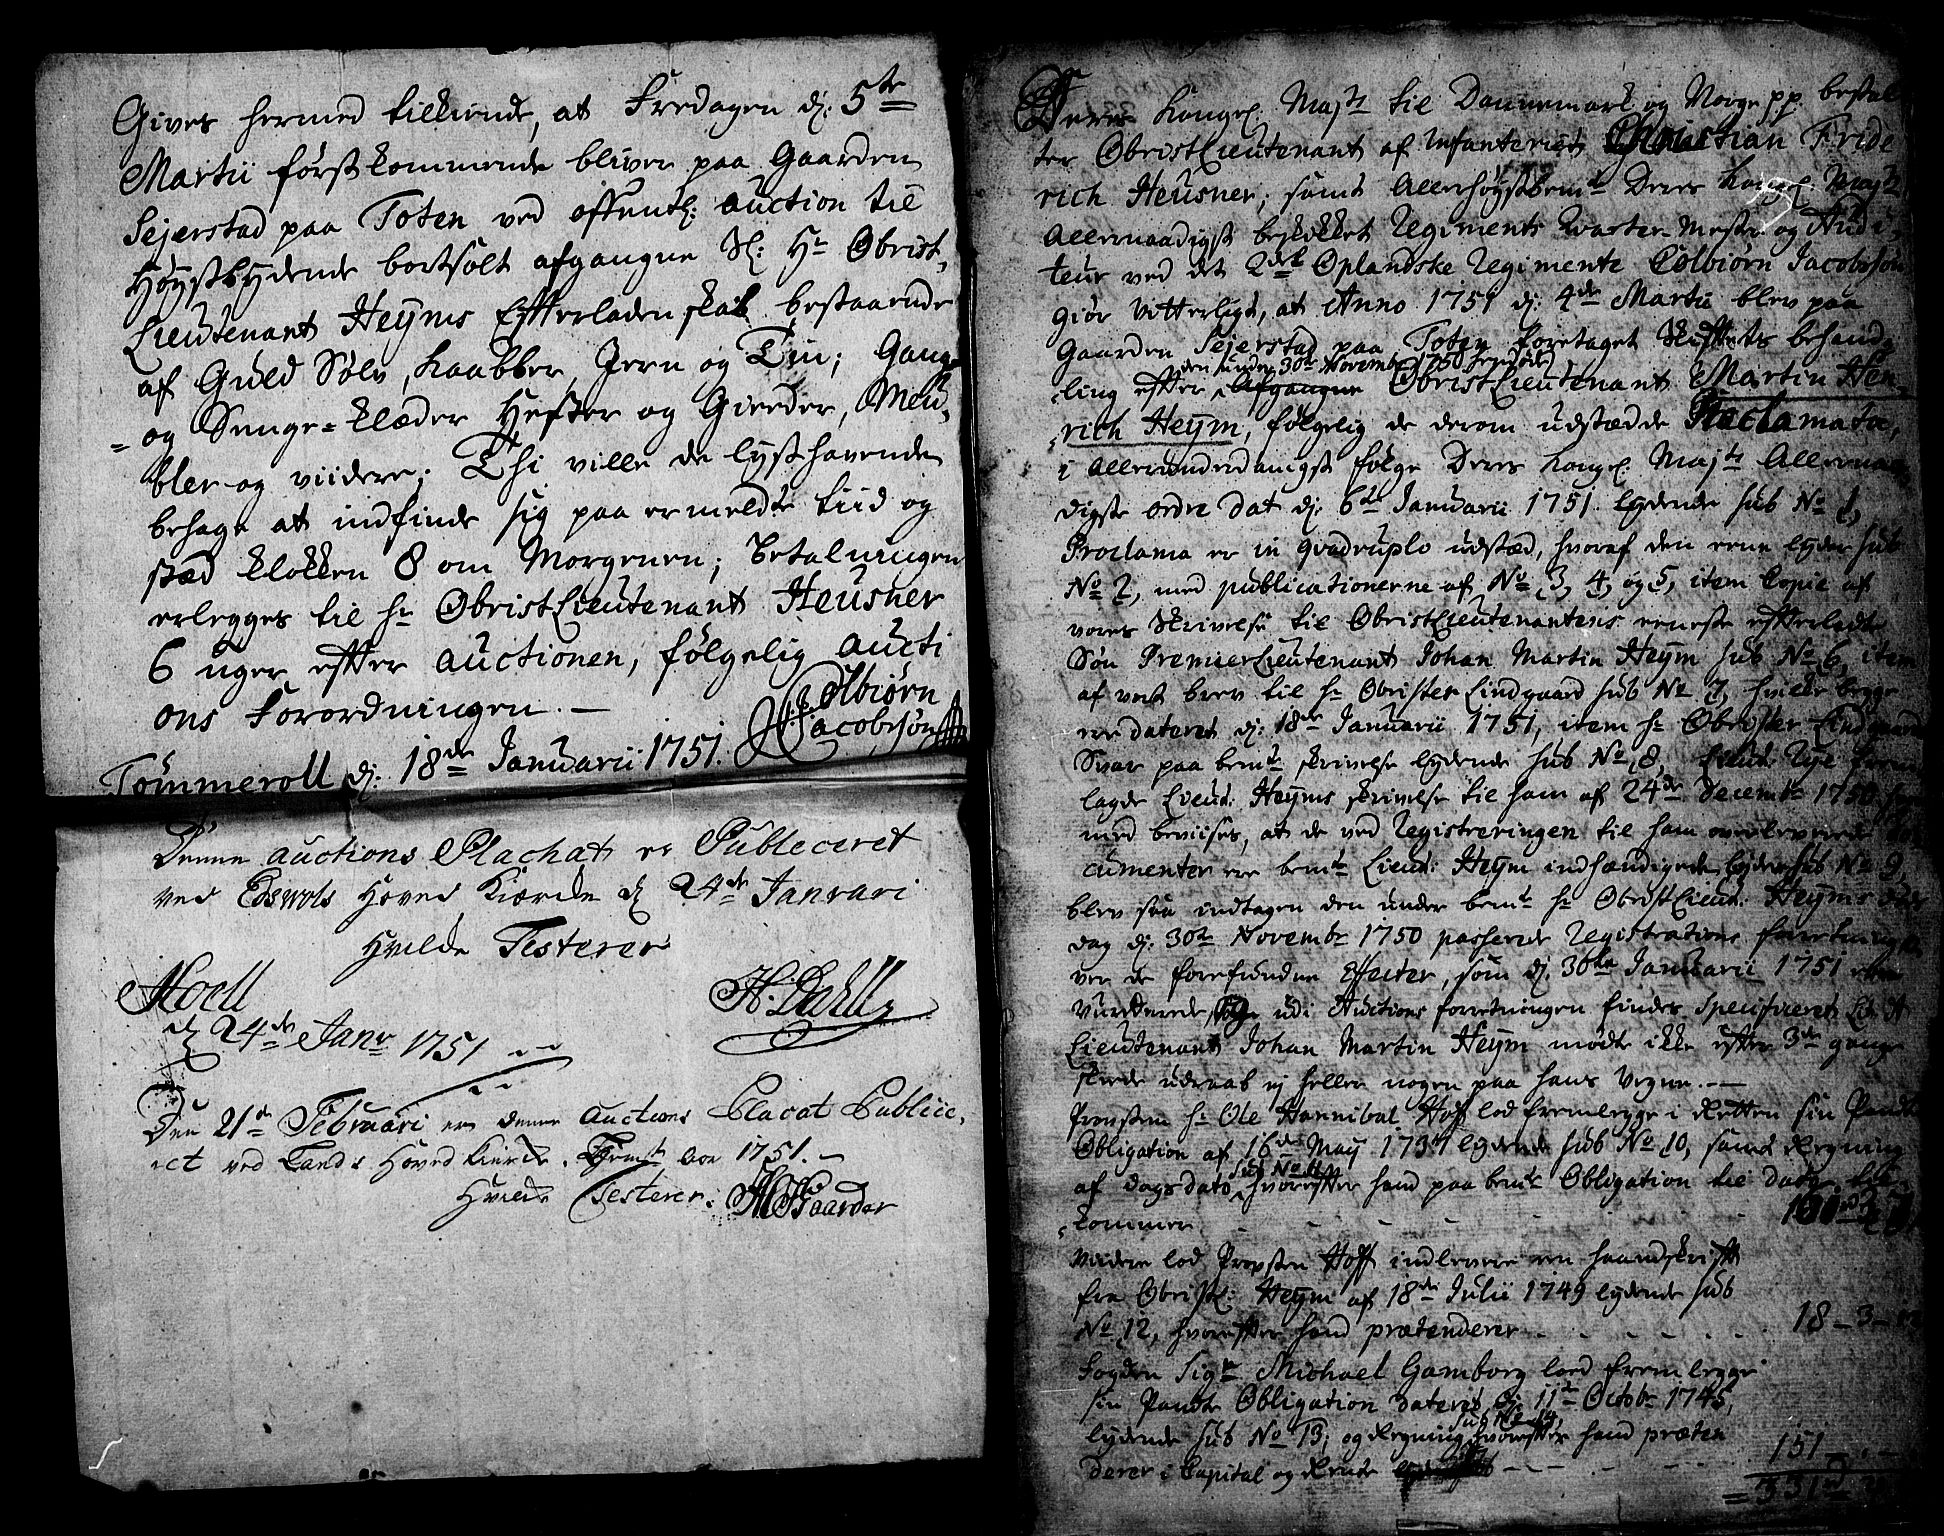 Gives hermed tilkiende, at Fredagen d: 5te
Martii førstkommende bliver paa Gaarden
Sejerstad paa Toten ved offentl: auction til
Høystbydende bortsolt afgangne Sl: Hr Obrist-
Lieutenant Heyms Efterladenskab bestaaende
af Guld Sølv, Kaabber Jern og Tin; Gang-
og Senge-klæder Hester og Creder, Meu-
bler og viidere; Thi ville de lysthavende
behage at indfinde sig paa ermeldte tiid og
stæd klokken 8 om Morgenen; Betalningen
erlegges til Hr ObristLieutenant Heusner
6 uger efter auctionen, følgelig Aucti
ons Forordningen. —
Colbiørn
Jacobssøn
Tømmeroll d: 18de Januarii 1751.
Denne auctions Plachat er Publeceret
ved Hoved Kircke d 24de Janvari
Hvilcke Testerer
Moell H. Dahll
d 24de Janv 1751
Den 21de Februari er denne auctions Placat Publiic-
ert ved Lands Hoved Kircke. Aar 1751. —
Hvilcke Testerer.
Deres Kongel. Majts til Dannemark og Norge pp. bestal
ter ObristLieutenant af Infanteriet Christian Fride
rich Heusner, samt Allerhøystbemte Deres Kongl Majts
Allernaadigst beskikket Regiments Qvarter Mester og Audi-
teur ved det 2det Oplandske Regimente Colbiørn Jacobssøn
giør vitterligt, at Anno 1751 d: 4de Martii blev paa
Gaarden Sejerstad paa Toten foretaget Skiftets behand-
den under 30te Novembr 1750
ling efter afgangne ObristLieutenant Martin Hen-
rich Heym, følgelig de derom udstædde Proclamata,
i allerunderdanigst følge Deres Kongl. Majts Allernaa
digste ordre dat d: 6te Januarii 1751 lydende sub No 1,
Proclama er in qvadruplo udstæd, hvoraf den eene lyder sub
No 2, med publicationerne af No 3, 4, og 5, item Copie af
vores Skrivelse til ObristLieutenantens eeneste efterladte
Søn PremierLieutenant Johan Martin Heym sub No 6, item
af vort brev til Hr Obrister Lindgaard sub No 7, hvilke begge
ere dateret d: 18de Januarii 1751, item Hr Obrister Lindgaard
Svar paa bemte skrivelse lydende sub No 8,
lagde Lieut: Heyms skrivelse til ham af 24de Decembr 1750
med beviises, at de ved Registreringen til ham overleverede
cumenter ere bemte Lieut: Heym indhændigede, lydende sub No 9,
blev saa indtagen den under bemte Hr ObristLieut: Heyms
dag d: 30te Novembr 1750 passerede Registrations forretning
ver de forefundne Effecter, som d: 30te Januarii 1751 ere
vurderede, og udi Auctions forretningen findes specificeret
Lieutenant Johan Martin Heym mødte ikke efter 3de gange
skeede udraab ej heller nogen paa hans vegne. —
Provsten Hr Ole Hannibal Hoff lod fremlegge i Retten sin Pandte
Obligation af 16de Maij 1737 lydende sub No 10, samt Regning
sub No 11
af dags dato, hvorefter hand paa bemte Obligation til dato til-
kommer
viidere lod Provsten Hoff indlevere en haandskrift
fra Obristl: Heym af 18de Julii 1749 lydende sub
No 12, hvorefter hand prætenderer 18 – 3 –
Fogden Sigr Michael Gamborg lod fremlegge
sin Pandte Obligation dateret d: 11te Octobr 1745,
sub No 14,
lydende sub No 13, og Regning hvorefter hand præten
derer i Capital og Rente 151 –